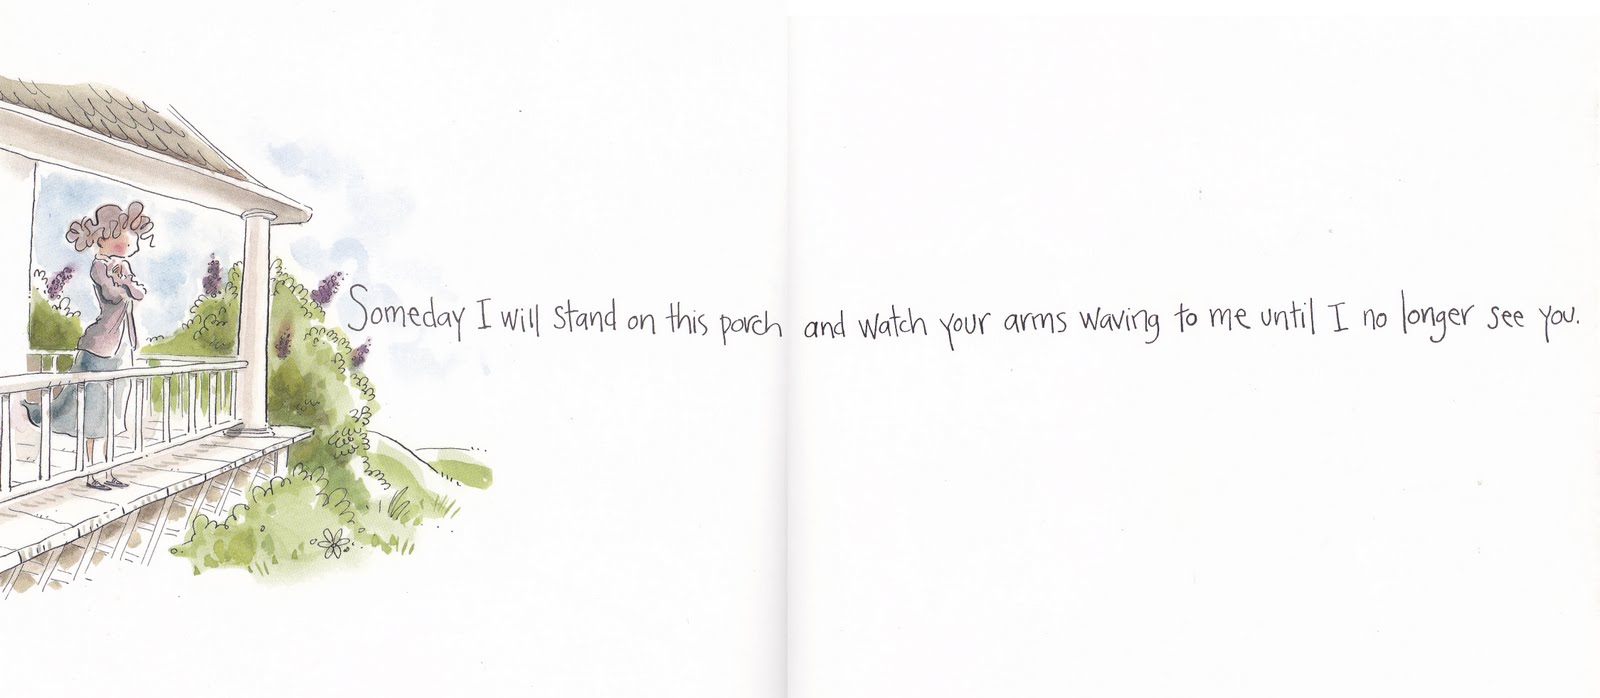 Someday I will stand on this porch and watch your arms waving to me until I no longer see you.